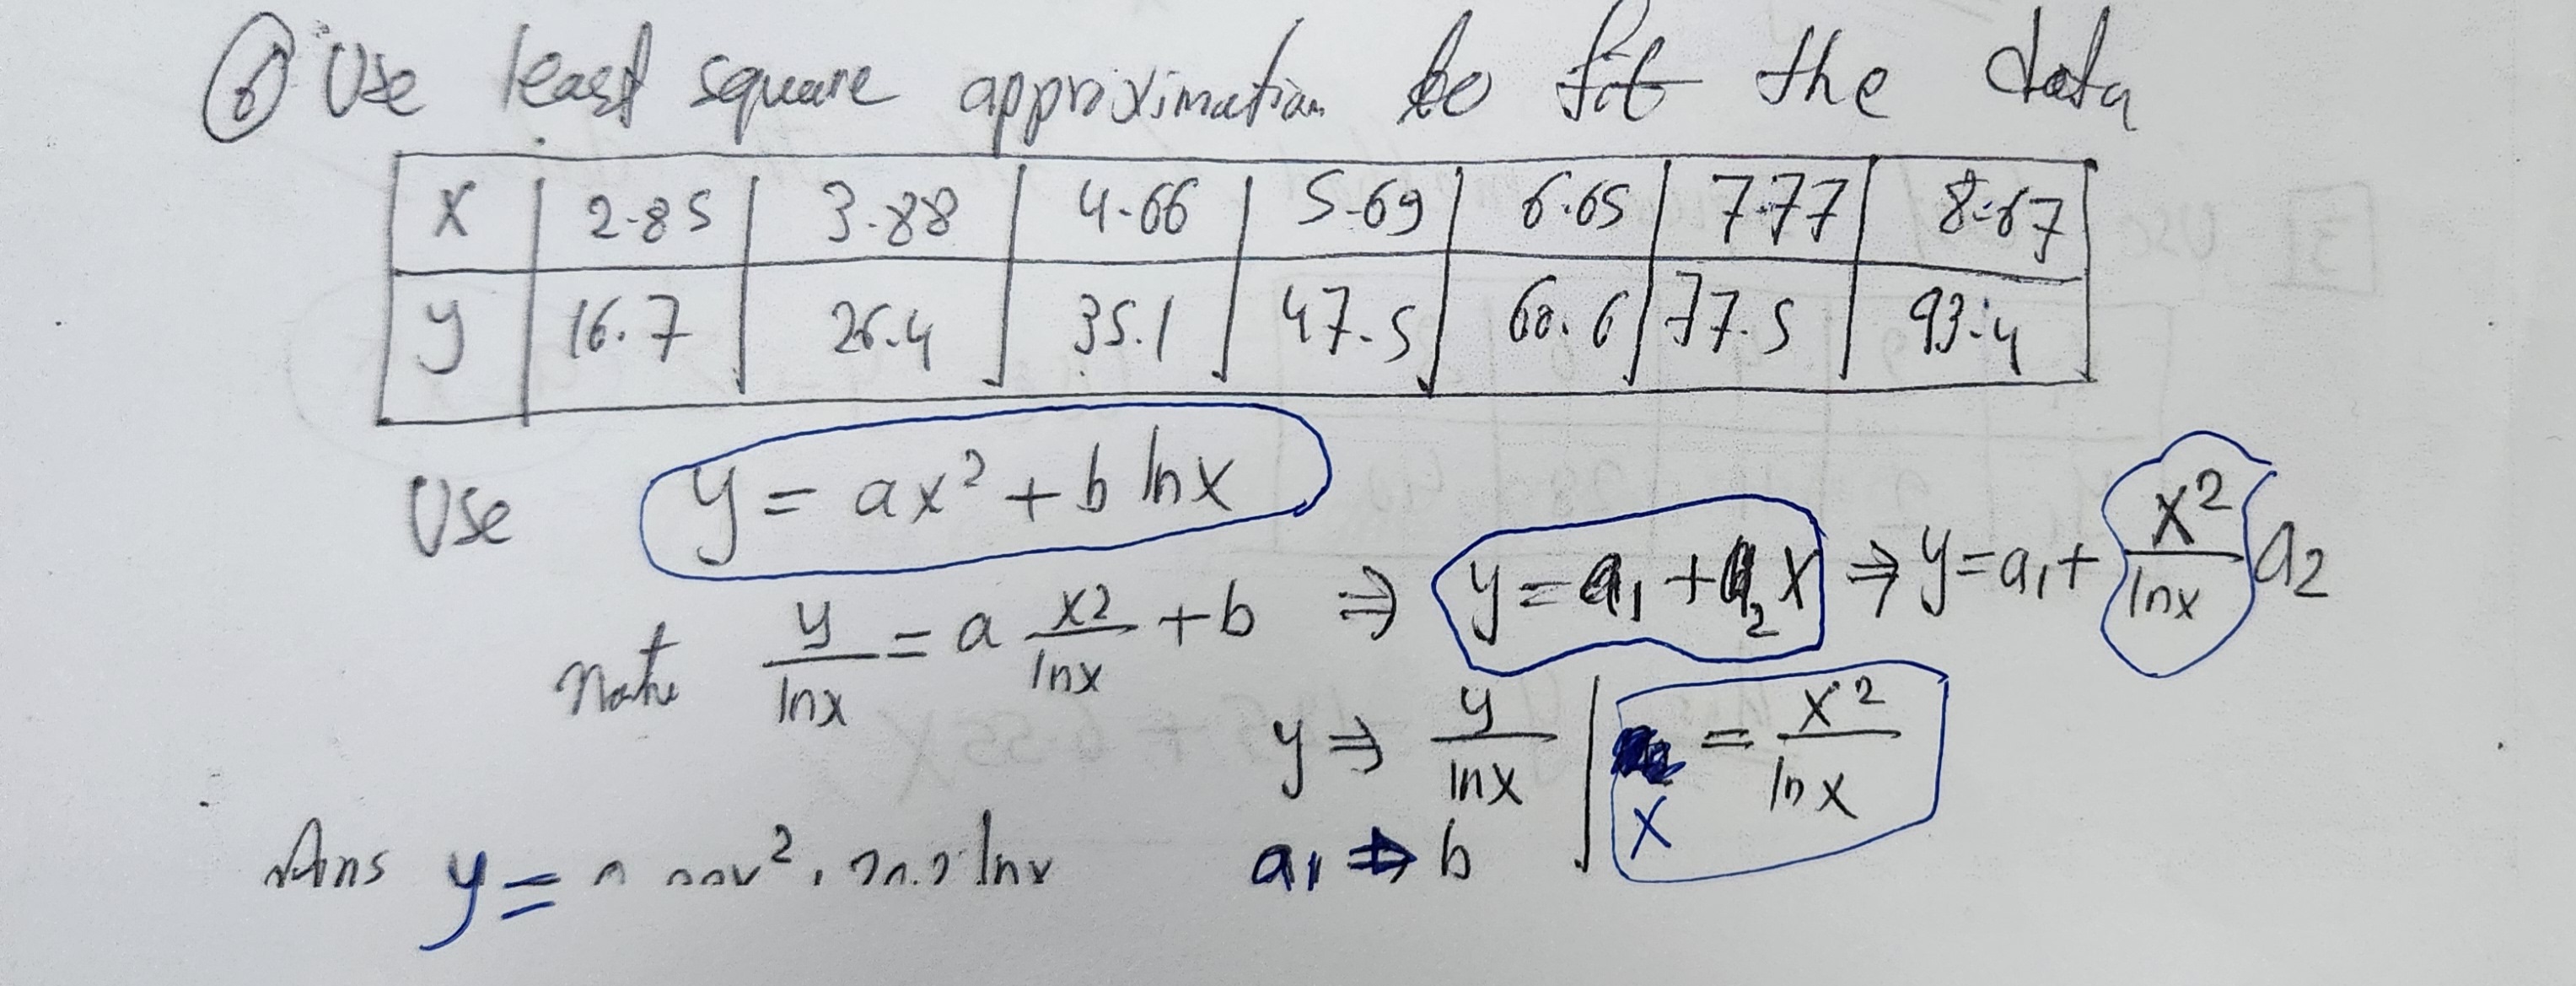 ⑥ Use least square approximation to fit the data
X 2.85 3.88 4.66 5.69 6.65 7.77 8.67
y 16.7 26.4 35.1 47.5 60.6 77.5 93.4
Use y = ax² + b lnx
note y/lnx = a x²/lnx + b ⇒ y = a₁ + a₂ x ⇒ y = a₁ + x²/lnx a₂
y ⇒ y/lnx | x = x²/lnx
a₁ ⇒ b
Ans y = lnx